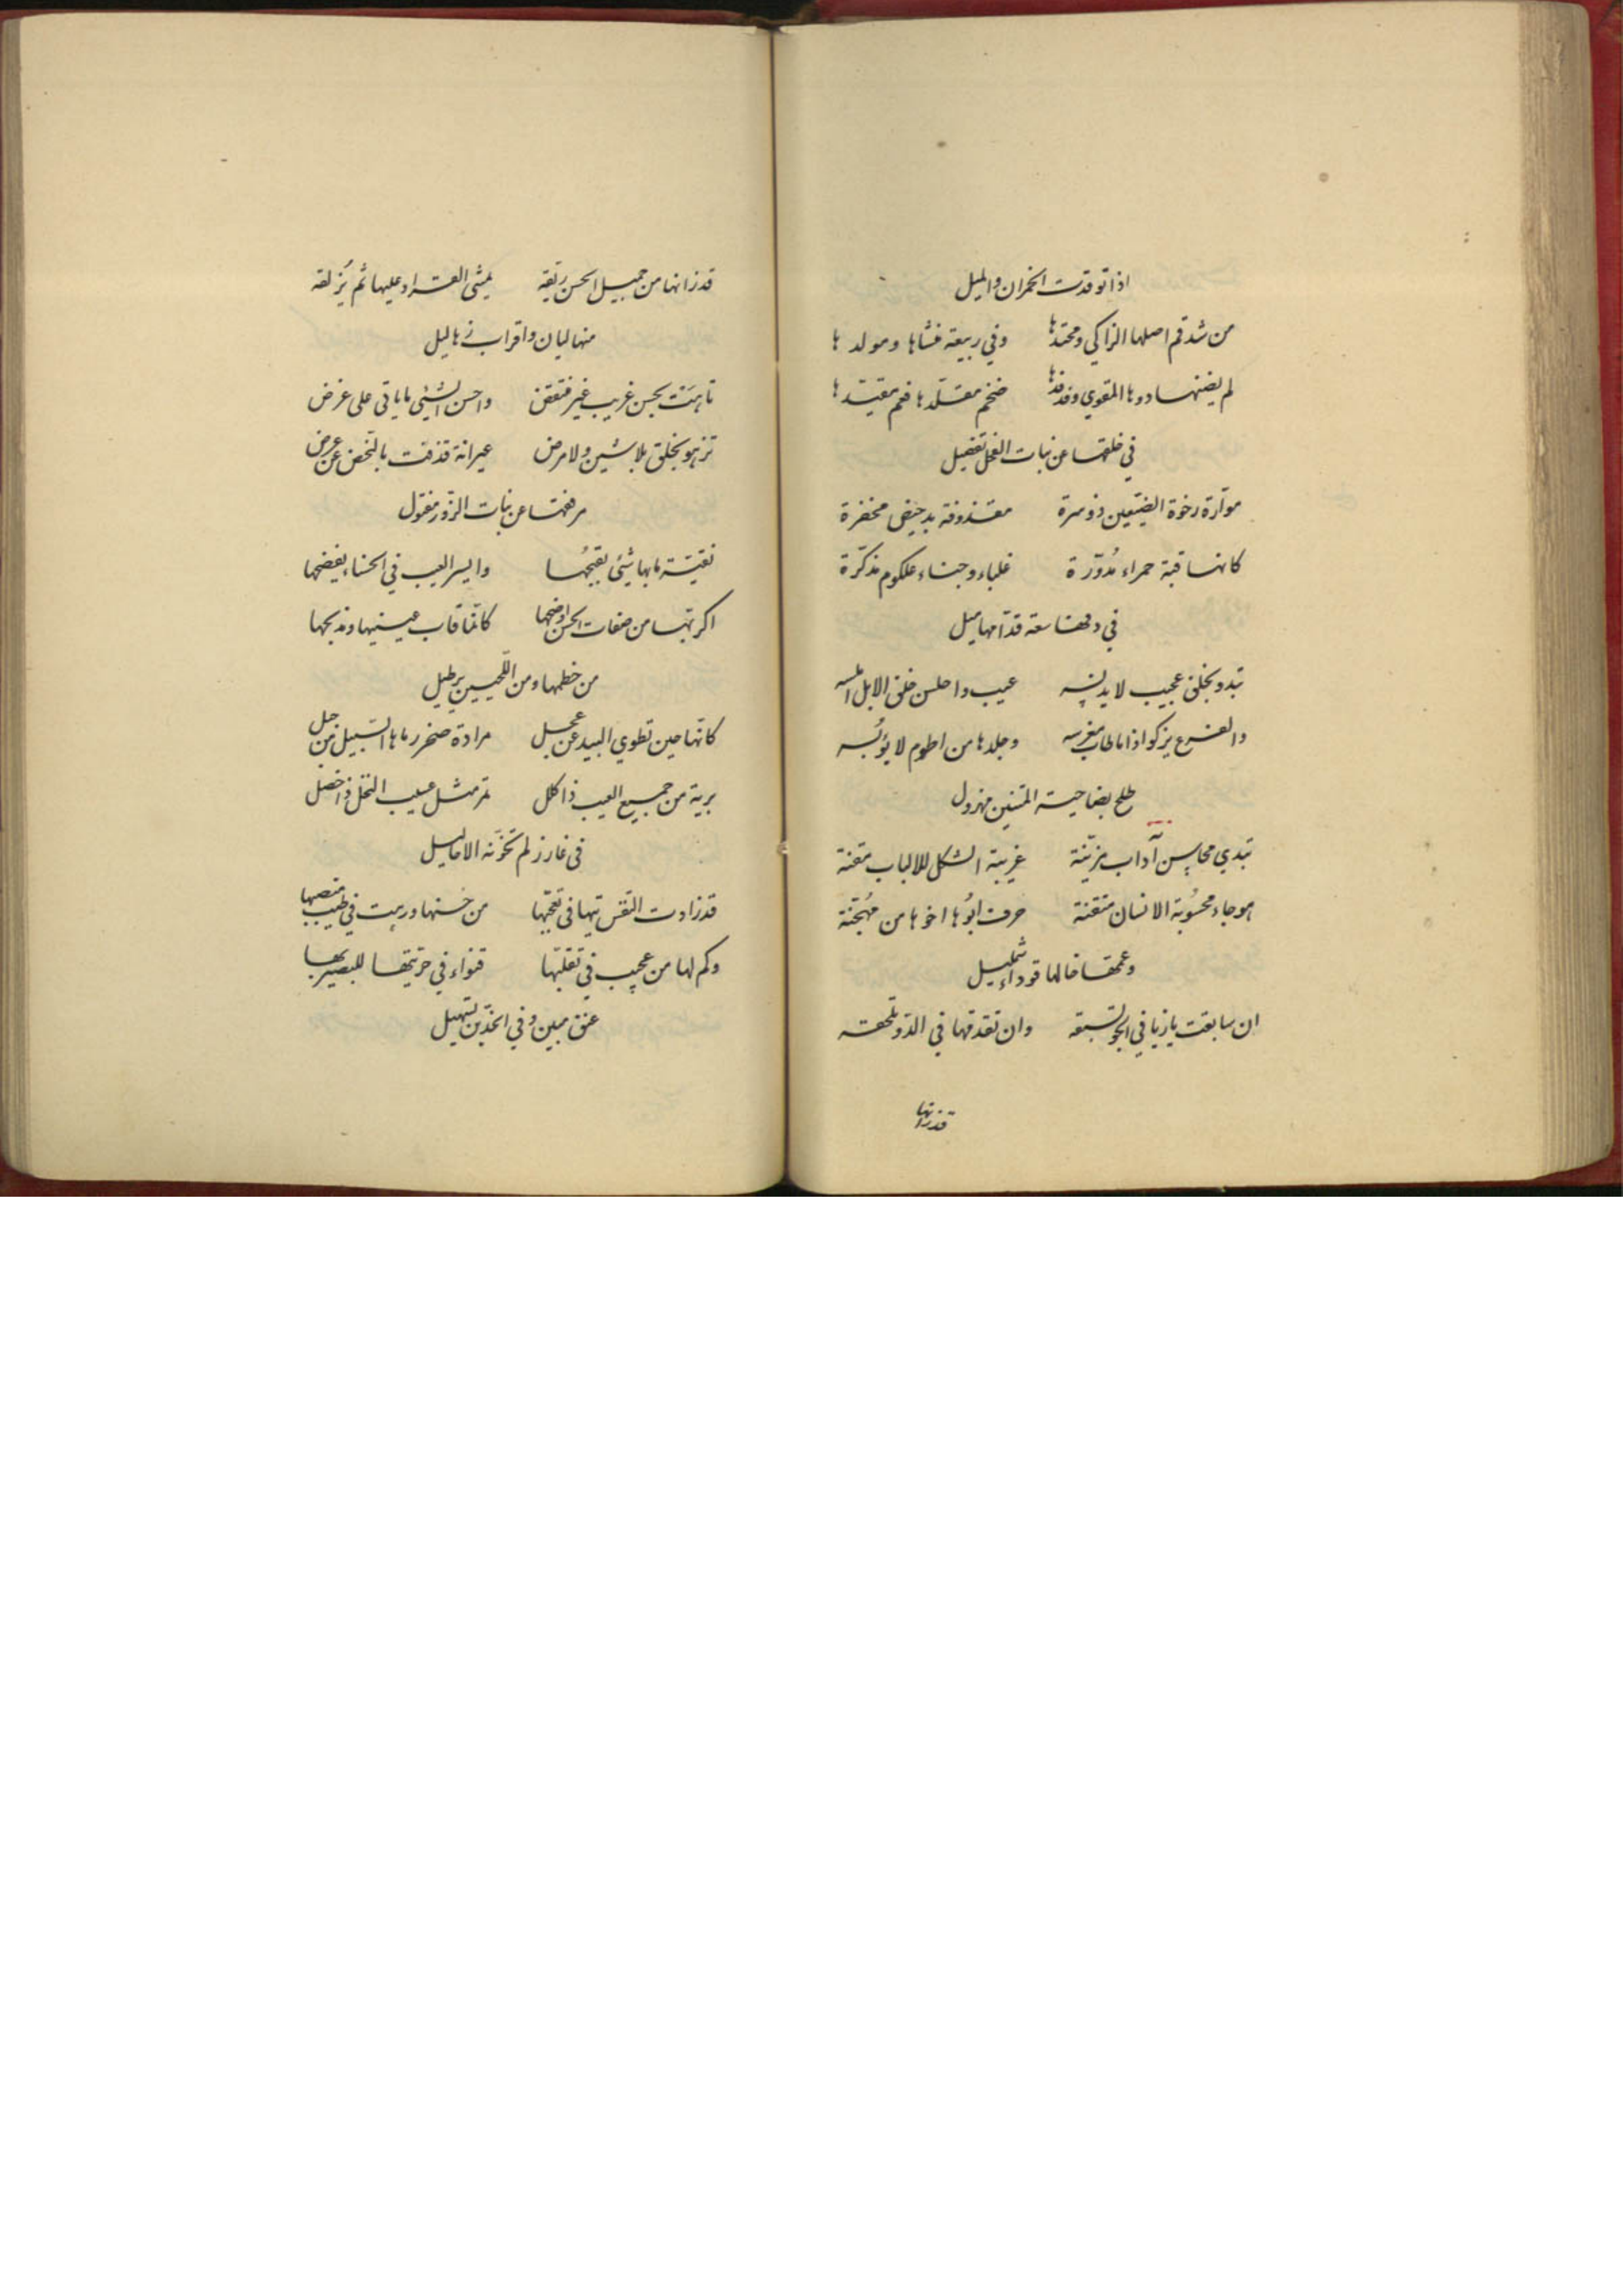 اذا توقدت الخمران والميل
من شدقم اصلها الزاكي ومحتدها وفي ربيعة منشاها ومولدها
لم يضنها دوها المقوي وفدفدها ضخم مقلدها فعم مقيدها
في خلقها عن بنات الفحل تفضيل
موارة رخوة الضبعين ذو مرة مقذوفة بدخيض محضرة
كانها قبة حمراء مدورة غلباء وجناء علكوم مذكرة
في دفها سعة قدامها ميل
تبدو بخلق عجيب لا يدنسه عيب واحلس خلق الابل املسه
والفرع يزكو اذا ما طاب مغرسه وجلدها من اطوم لا يؤيسه
طلح بضاحية المتنين مهزول
تبدي محاسن آداب مزينة غريبة الشكل للالباب متقنة
هوجاء محسوبة الانسان متقنة حرف ابوها اخوها من مهجنة
وعمها خالها قوداء شمليل
ان سابقت بازيا في الجو تسبقه وان تقدمها في الدو تلحقه
قد زانها
قد زانها من جميل الحسن ريقه يمشي القراد عليها ثم يزلقه
منها لبان واقراب زهاليل
تاهت بحسن غريب غير منتقض واحسن الشيئ ما ياتي على غرض
تزهو بخلق بلا شين ولا مرض عيرانة قذفت بالنحض عن عرض
مرفقها عن بنات الزور مفتول
نقية ما بها شيئ يقبحها وايسر العيب في الحسناء يفضحها
اكرم بها من صفات الحسن اوضحها كانما قاب عينيها ومذبحها
من خطمها ومن اللحيين برطيل
كانها حين تطوي البيد عن عجل مرادة صخر رماها السيل من جبل
برية من جميع العيب ذا كلل تمر مثل عسيب النخل ذا خصل
في غارز لم تخونه الاحاليل
قد زادت النفس تيها في تعجبها من حسنها وربت في طيب منصبها
وكم لها من عجيب في تقلبها قنواء في حرتيها للبصير بها
عتق مبين وفي الخدين تسهيل